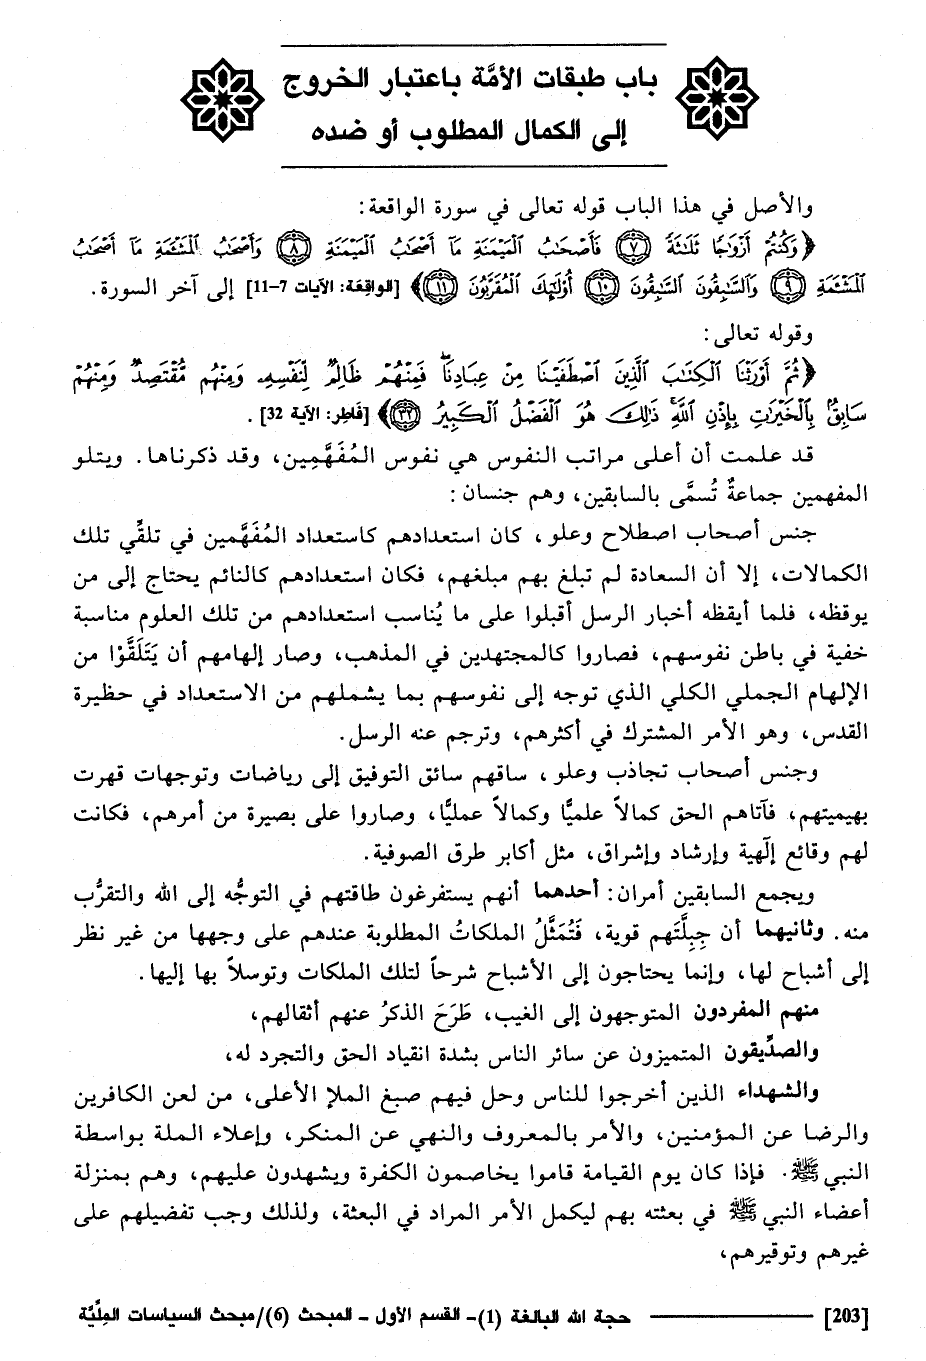 باب طبقات الأمَّة باعتبار الخروج
إلى الكمال المطلوب أو ضده
والأصل في هذا الباب قوله تعالى في سورة الواقعة:
﴿وَكُنتُمْ أَزْوَٰجًا ثَلَـٰثَةً ﴿٧﴾ فَأَصْحَـٰبُ ٱلْمَيْمَنَةِ مَآ أَصْحَـٰبُ ٱلْمَيْمَنَةِ ﴿٨﴾ وَأَصْحَـٰبُ ٱلْمَشْـَٔمَةِ مَآ أَصْحَـٰبُ
ٱلْمَشْـَٔمَةِ ﴿٩﴾ وَٱلسَّـٰبِقُونَ ٱلسَّـٰبِقُونَ ﴿١٠﴾ أُوْلَـٰٓئِكَ ٱلْمُقَرَّبُونَ ﴿١١﴾﴾ [الواقِعَة: الآيات 7–11] إلى آخر السورة.
وقوله تعالى:
﴿ثُمَّ أَوْرَثْنَا ٱلْكِتَـٰبَ ٱلَّذِينَ ٱصْطَفَيْنَا مِنْ عِبَادِنَا ۖ فَمِنْهُمْ ظَالِمٌ لِّنَفْسِهِۦ وَمِنْهُم مُّقْتَصِدٌ وَمِنْهُمْ
سَابِقٌۢ بِٱلْخَيْرَٰتِ بِإِذْنِ ٱللَّهِ ۚ ذَٰلِكَ هُوَ ٱلْفَضْلُ ٱلْكَبِيرُ ﴿٣٢﴾﴾ [فَاطِر: الآية 32].
قد علمت أن أعلى مراتب النفوس هي نفوس المُفَهَّمِين، وقد ذكرناها. ويتلو
المفهمين جماعةٌ تُسمَّى بالسابقين، وهم جنسان:
جنس أصحاب اصطلاح وعلو، كان استعدادهم كاستعداد المُفَهَّمين في تلقِّي تلك
الكمالات، إلا أن السعادة لم تبلغ بهم مبلغهم، فكان استعدادهم كالنائم يحتاج إلى من
يوقظه، فلما أيقظه أخبار الرسل أقبلوا على ما يُناسب استعدادهم من تلك العلوم مناسبة
خفية في باطن نفوسهم، فصاروا كالمجتهدين في المذهب، وصار إلهامهم أن يَتَلَقَّوْا من
الإلهام الجملي الكلي الذي توجه إلى نفوسهم بما يشملهم من الاستعداد في حظيرة
القدس، وهو الأمر المشترك في أكثرهم، وترجم عنه الرسل.
وجنس أصحاب تجاذب وعلو، ساقهم سائق التوفيق إلى رياضات وتوجهات قهرت
بهيميتهم، فآتاهم الحق كمالاً علميًّا وكمالاً عمليًّا، وصاروا على بصيرة من أمرهم، فكانت
لهم وقائع إلٰهية وإرشاد وإشراق، مثل أكابر طرق الصوفية.
ويجمع السابقين أمران: أحدهما أنهم يستفرغون طاقتهم في التوجُّه إلى الله والتقرُّب
منه. وثانيهما أن جِبِلَّتَهم قوية، فَتُمَثَّلُ الملكاتُ المطلوبة عندهم على وجهها من غير نظر
إلى أشباح لها، وإنما يحتاجون إلى الأشباح شرحاً لتلك الملكات وتوسلاً بها إليها.
منهم المفردون المتوجهون إلى الغيب، طَرَحَ الذكرُ عنهم أثقالهم،
والصدِّيقون المتميزون عن سائر الناس بشدة انقياد الحق والتجرد له،
والشهداء الذين أخرجوا للناس وحل فيهم صبغ الملإ الأعلى، من لعن الكافرين
والرضا عن المؤمنين، والأمر بالمعروف والنهي عن المنكر، وإعلاء الملة بواسطة
النبي ﷺ. فإذا كان يوم القيامة قاموا يخاصمون الكفرة ويشهدون عليهم، وهم بمنزلة
أعضاء النبي ﷺ في بعثته بهم ليكمل الأمر المراد في البعثة، ولذلك وجب تفضيلهم على
غيرهم وتوقيرهم،
[203] حجة الله البالغة (1)– القسم الأول – المبحث (6)/مبحث السياسات المِلِّيَّة